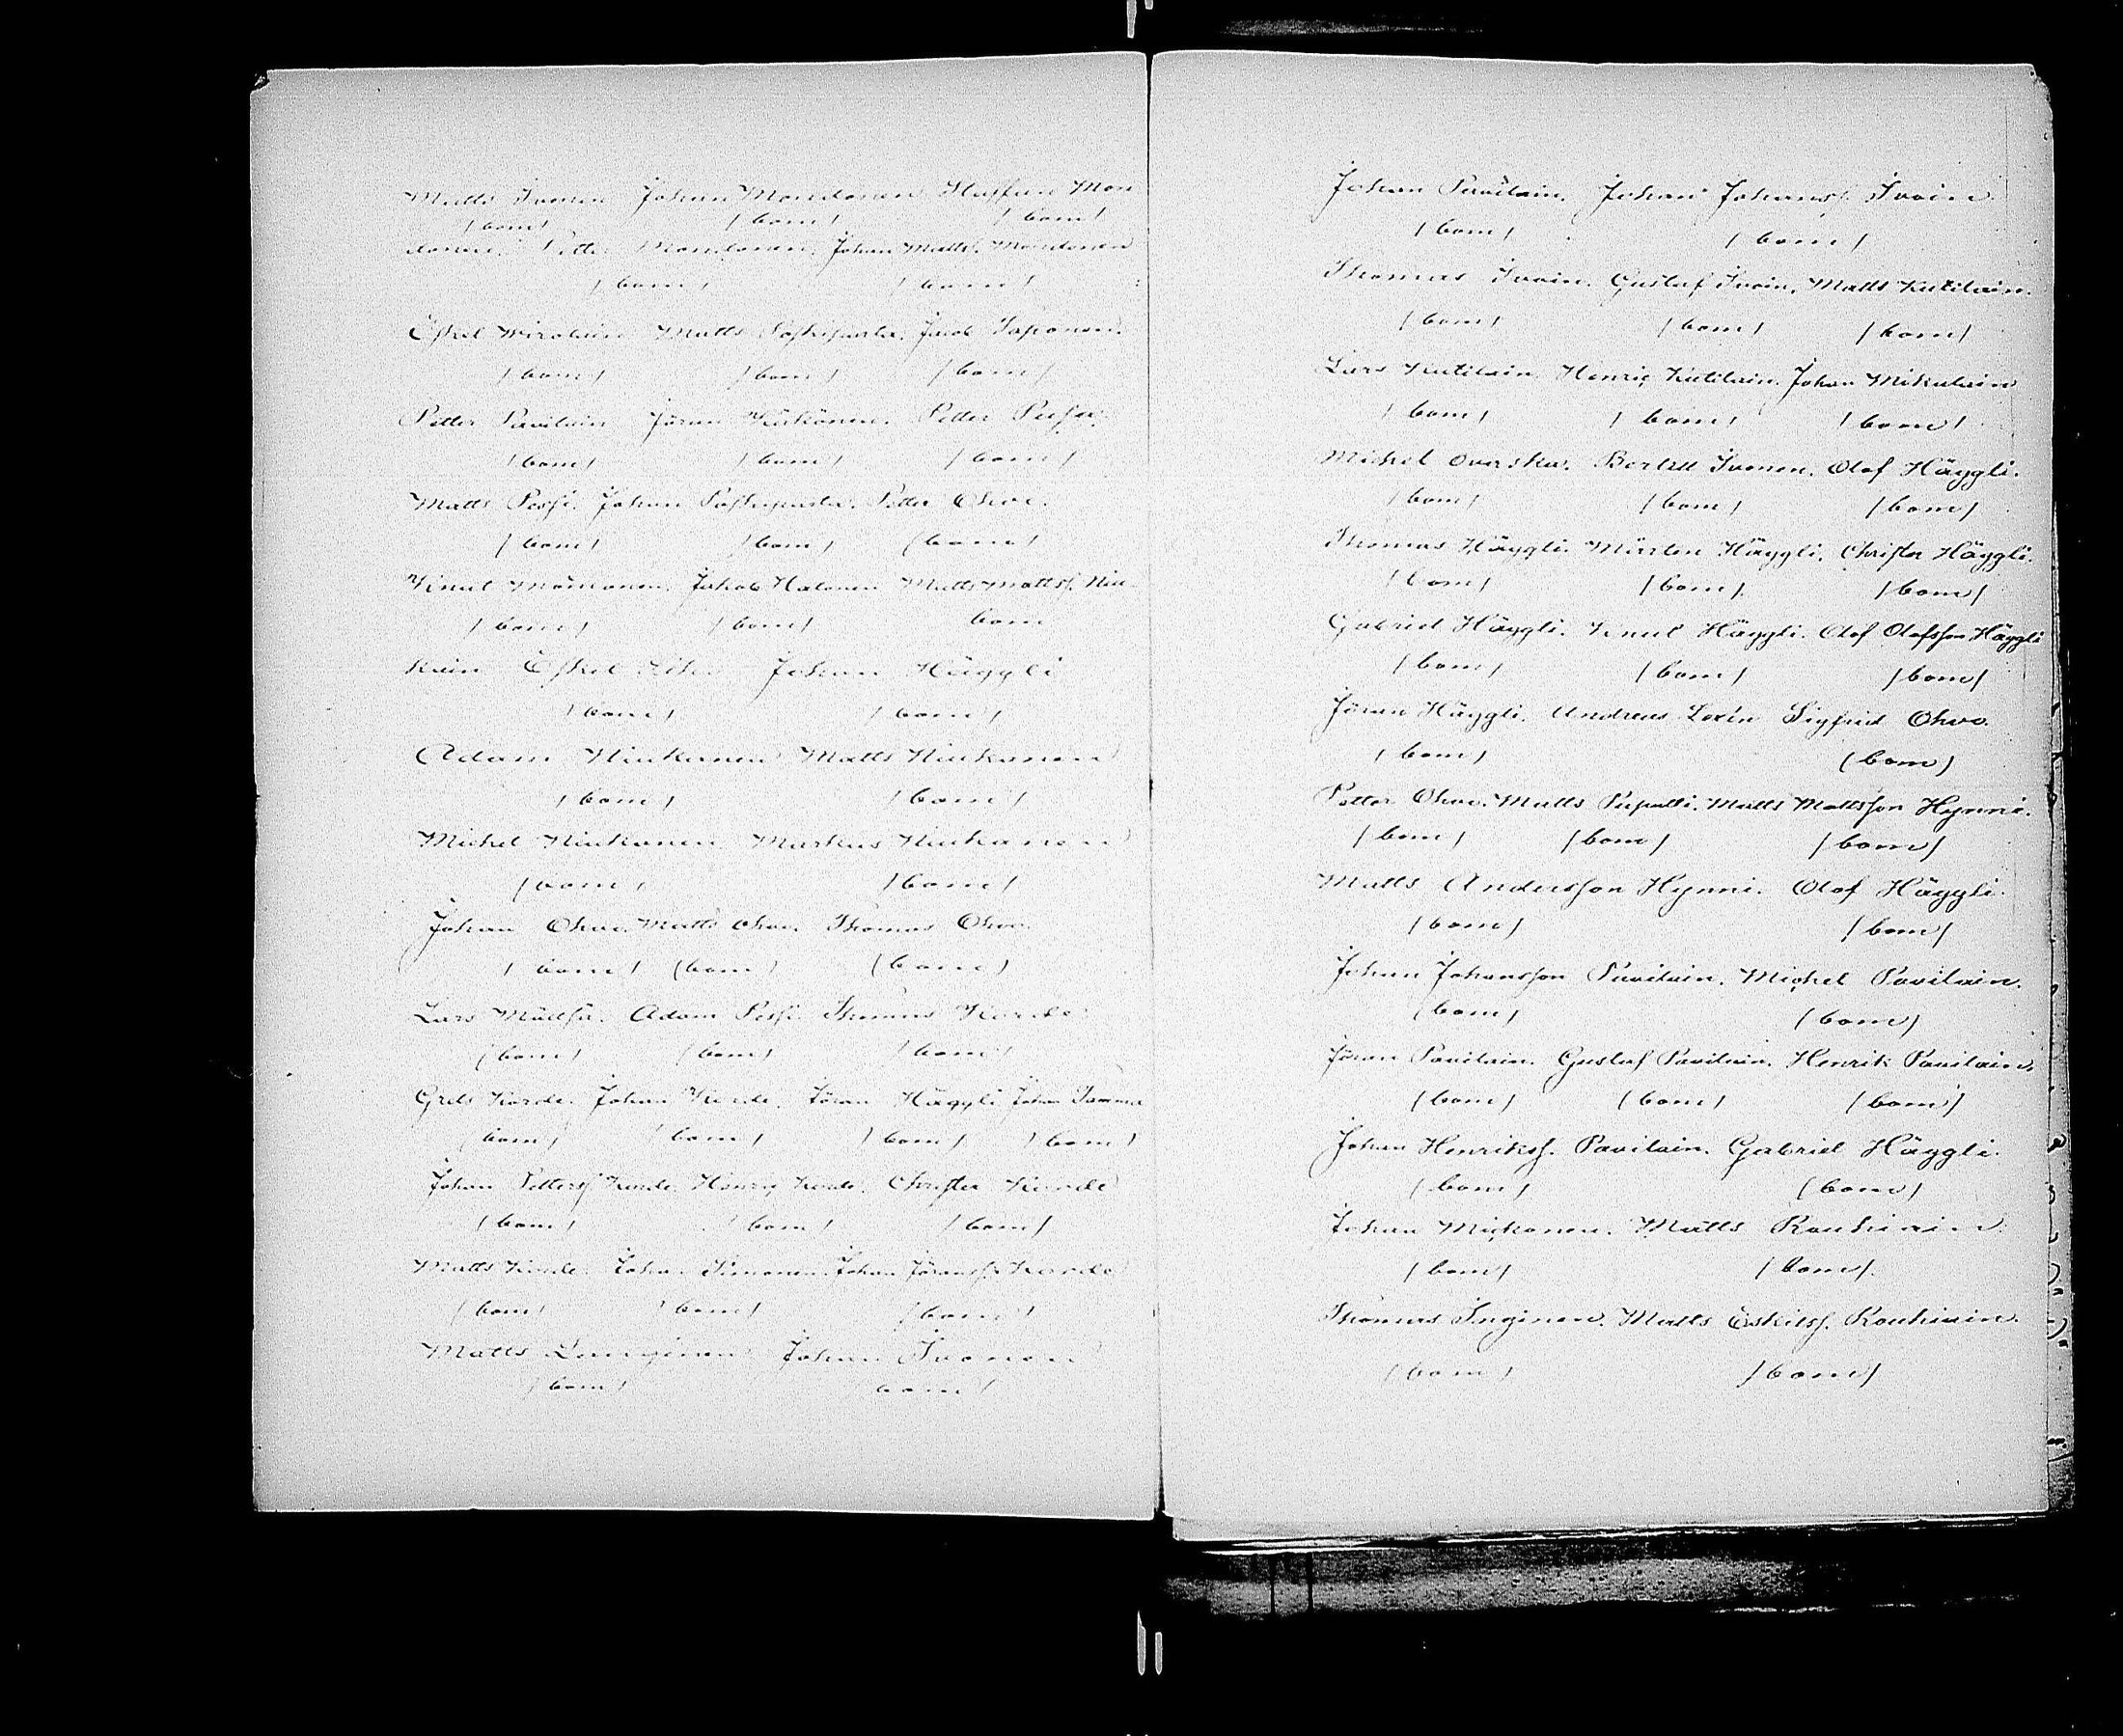 Matts Ivonen Johan Mondonen Staffan Mon
/bom/ /bom/ /bom/
donen. Petter Mondonen. Johan Matts. Mondonen
/bom/ /bom/
Eskel Wirolain Matts Jacob Saponen.
/bom/ /bom/ /bom/
Petter Pavilain Jöran Kukonen. Petter
/bom/ /bom/ /bom/
Matts Possi. Johan Petter Ohvo.
/bom/ /bom/ /bom/
Knut Jakob Halonen Matts Mattsf. Niu
/bom/ /bom/ bom
kain Eskel Johan Häggli
/bom/ /bom/
Adam Niukanen Matts Niukanen
/bom/ /bom/
Michel Niukanen Markus Niukanen
/bom/ /bom/
Johan Ohvo. Matts Ohvo. Thomas Ohvo.
/bom/ /bom/ /bom/
Lars Adam Possi. Thomas Korde.
/bom/ /bom/ /bom/
Grels Korde. Johan Korde. Jöran Häggli Johan
/bom/ /bom/ /bom/ /bom/
Johan Pettersf Korde. Henric Korde. Christer Korde
/bom/ /bom/ /bom/
Matts Korde. Johan Simonen. Johan Jöransf. Korde
/bom/ /bom/ /bom/
Matts Johan Ivonen
/bom/ bom/
Johan Pavilain. Johan Johansf. Ivoin
/bom/ /bom/
Thomas Ivoin. Gustaf Ivoin. Matts Kutilain.
/bom/ /bom/ /bom/
Lars Kutilain. Henric Kutilain. Johan Mikulain
/bom/ /bom/ /bom/
Michel Ovaska. Bertell Ivonen. Olof Häggli.
/bom/ /bom/ /bom/
Thomas Häggli. Mårten Häggli. Christer Häggli.
/bom/ /bom/ /bom/
Gabriel Häggli. Knut Häggli. Olof Olofsson Häggli
/bom/ /bom/ /bom/
Jöran Häggli. Andreas Lorén Sigfrid Ohvo.
/bom/ /bom/
Petter Ohvo. Matts Matts Mattsson Hynni.
/bom/ /bom/ /bom/
Matts Andersson Hynni. Olof Häggli.
/bom/ /bom/
Johan Johansson Pavilain. Michel Pavilain.
/bom/ /bom/
Jöran Pavilain. Gustaf Pavilain. Henrik Pavilain.
/bom/ /bom/ /bom/
Johan Henriksf. Pavilain. Gabriel Häggli.
/bom/ /bom/
Johan Mickonen. Matts Rouhiain.
/bom/ /bom/.
Thomas Inginen. Matts Eskilsf. Rouhiain.
/bom/ /bom/